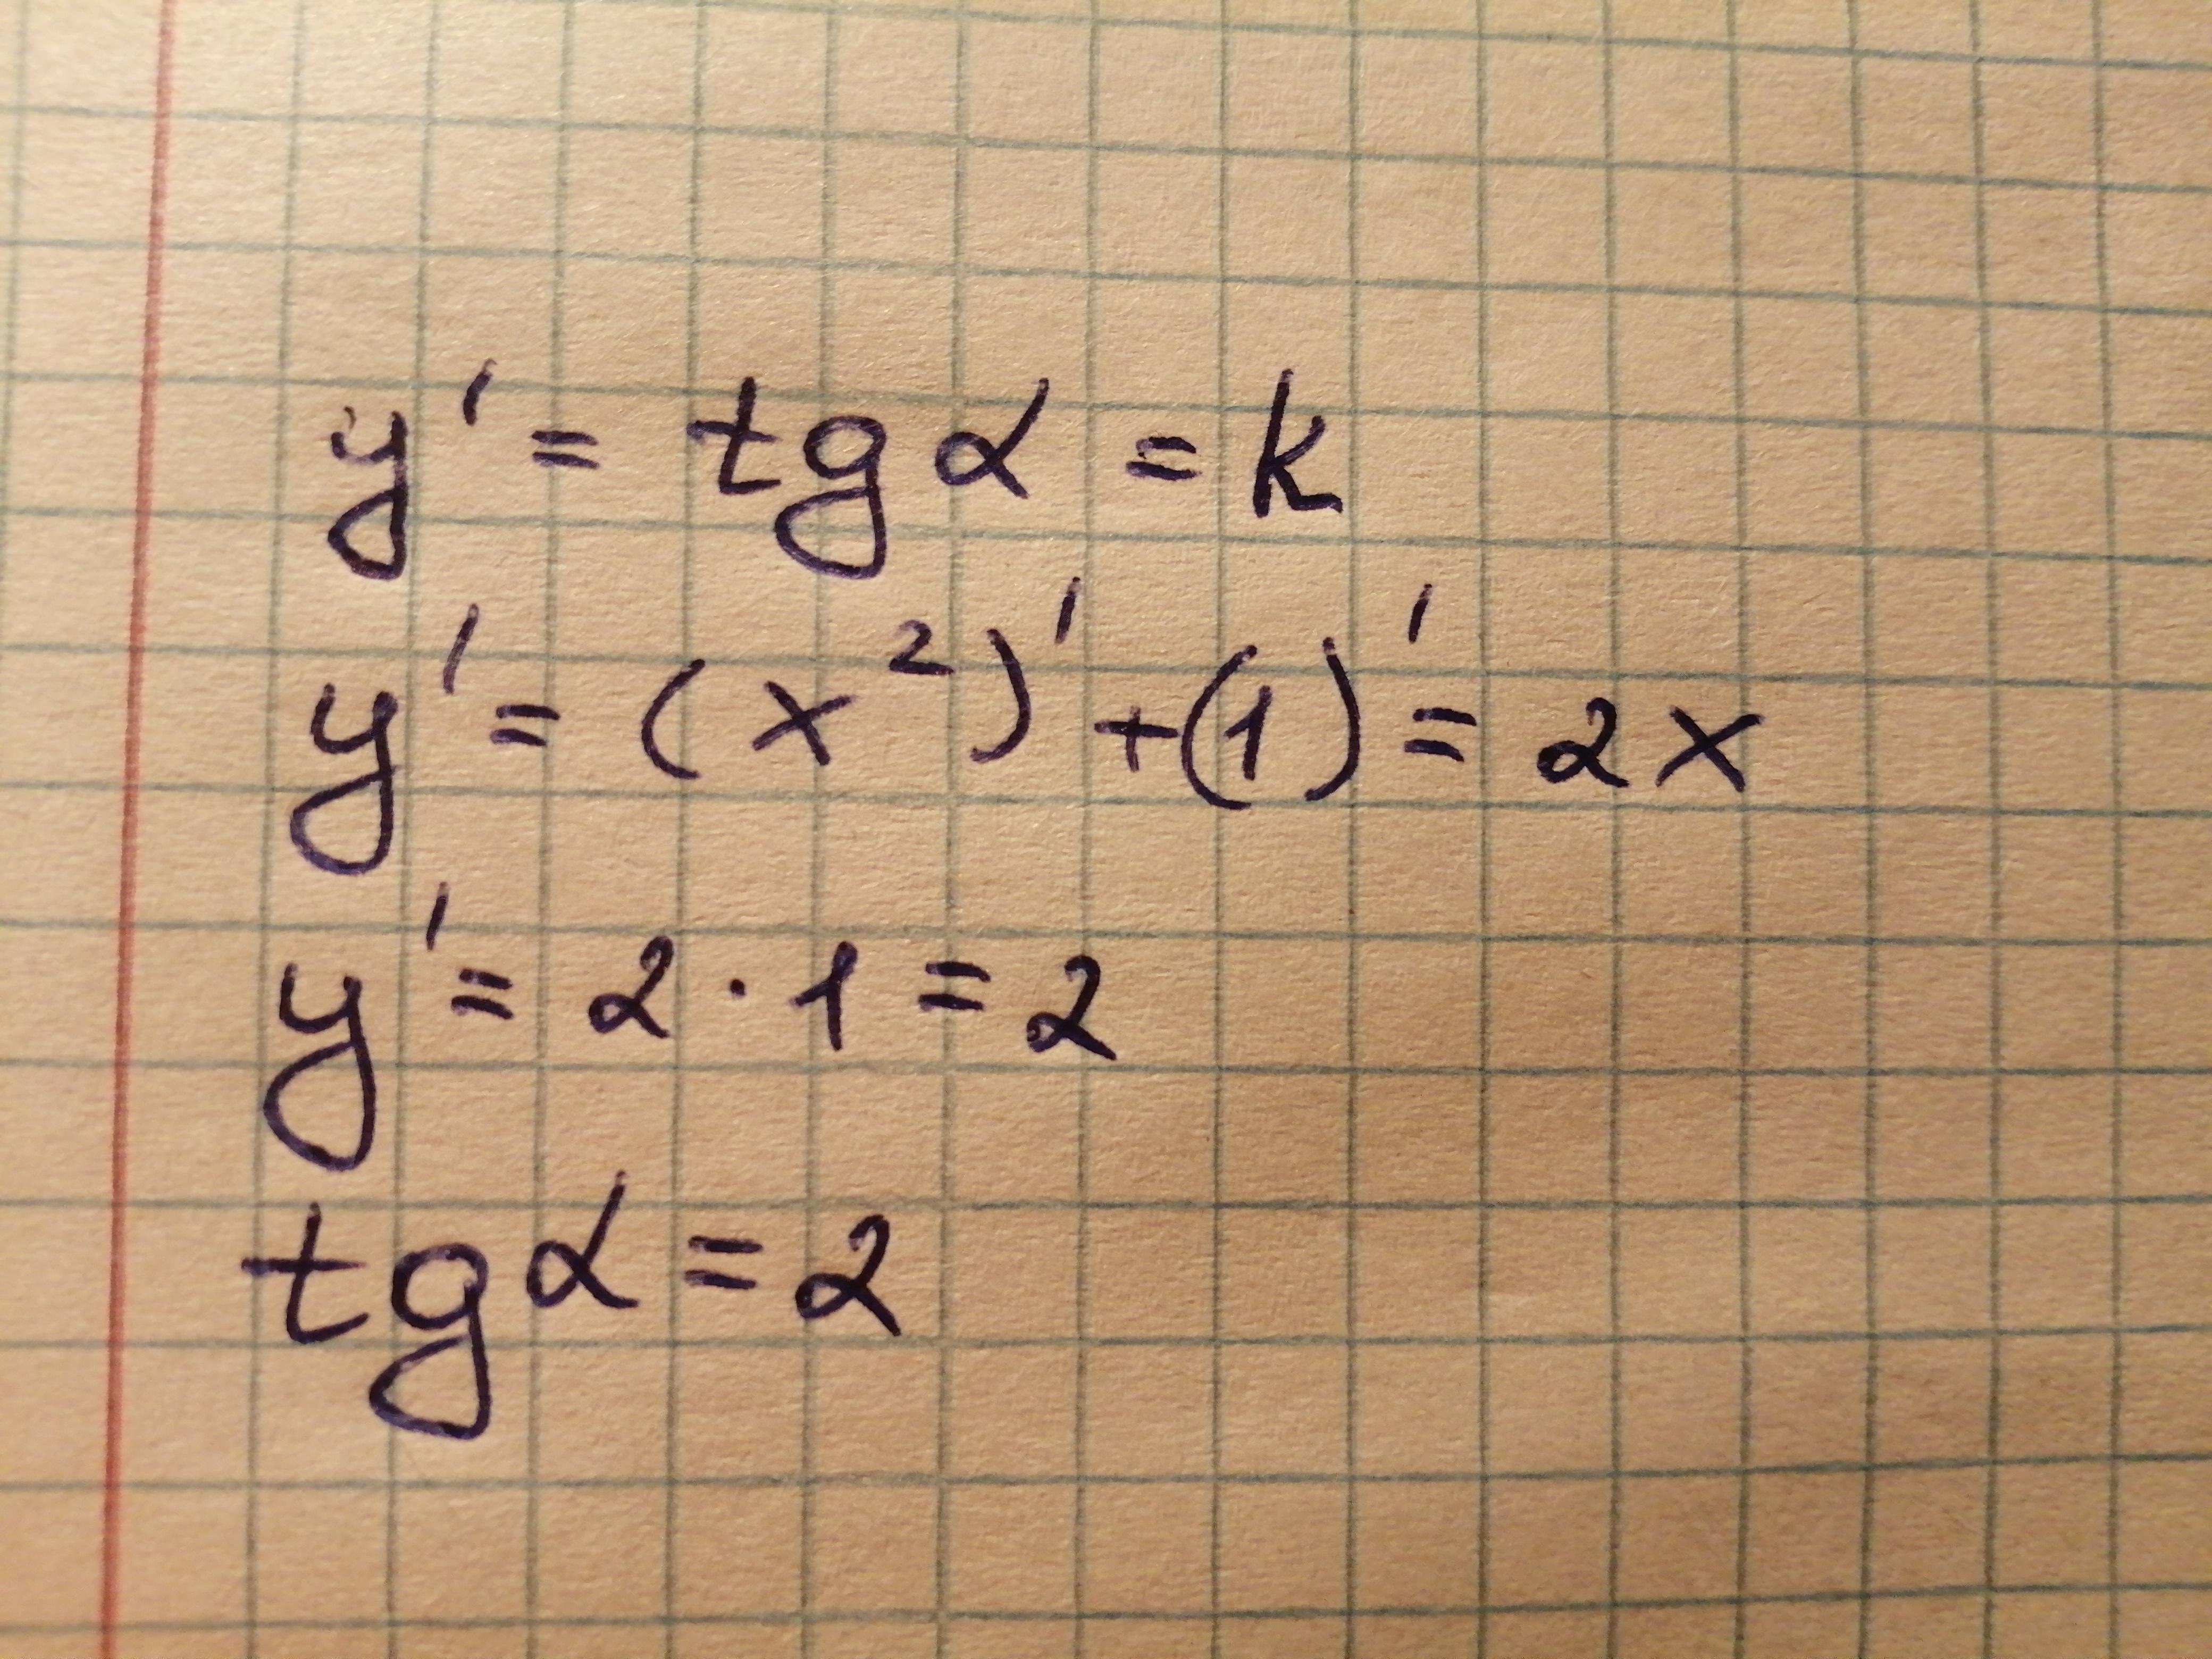 y' = tg α = k
y' = (x²)' + (1)' = 2x
y' = 2 · 1 = 2
tg α = 2